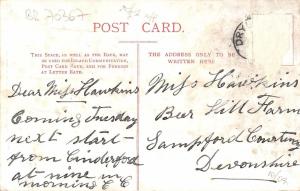 BR 70367
POST CARD.
THIS SPACE, AS WELL AS THE BACK, MAY
BE USED FOR INLAND COMMUNICATION,
POST CARD RATE, AND FOR FOREIGN
AT LETTER RATE.
THE ADDRESS ONLY TO BE
WRITTEN HERE.
Dear Miss Hawkins
Coming Tuesday
next start
from Cinderford
at nine in
morning E C
Miss Hawkins
Beer Hill Farm
Sampford Courtney
Devonshire